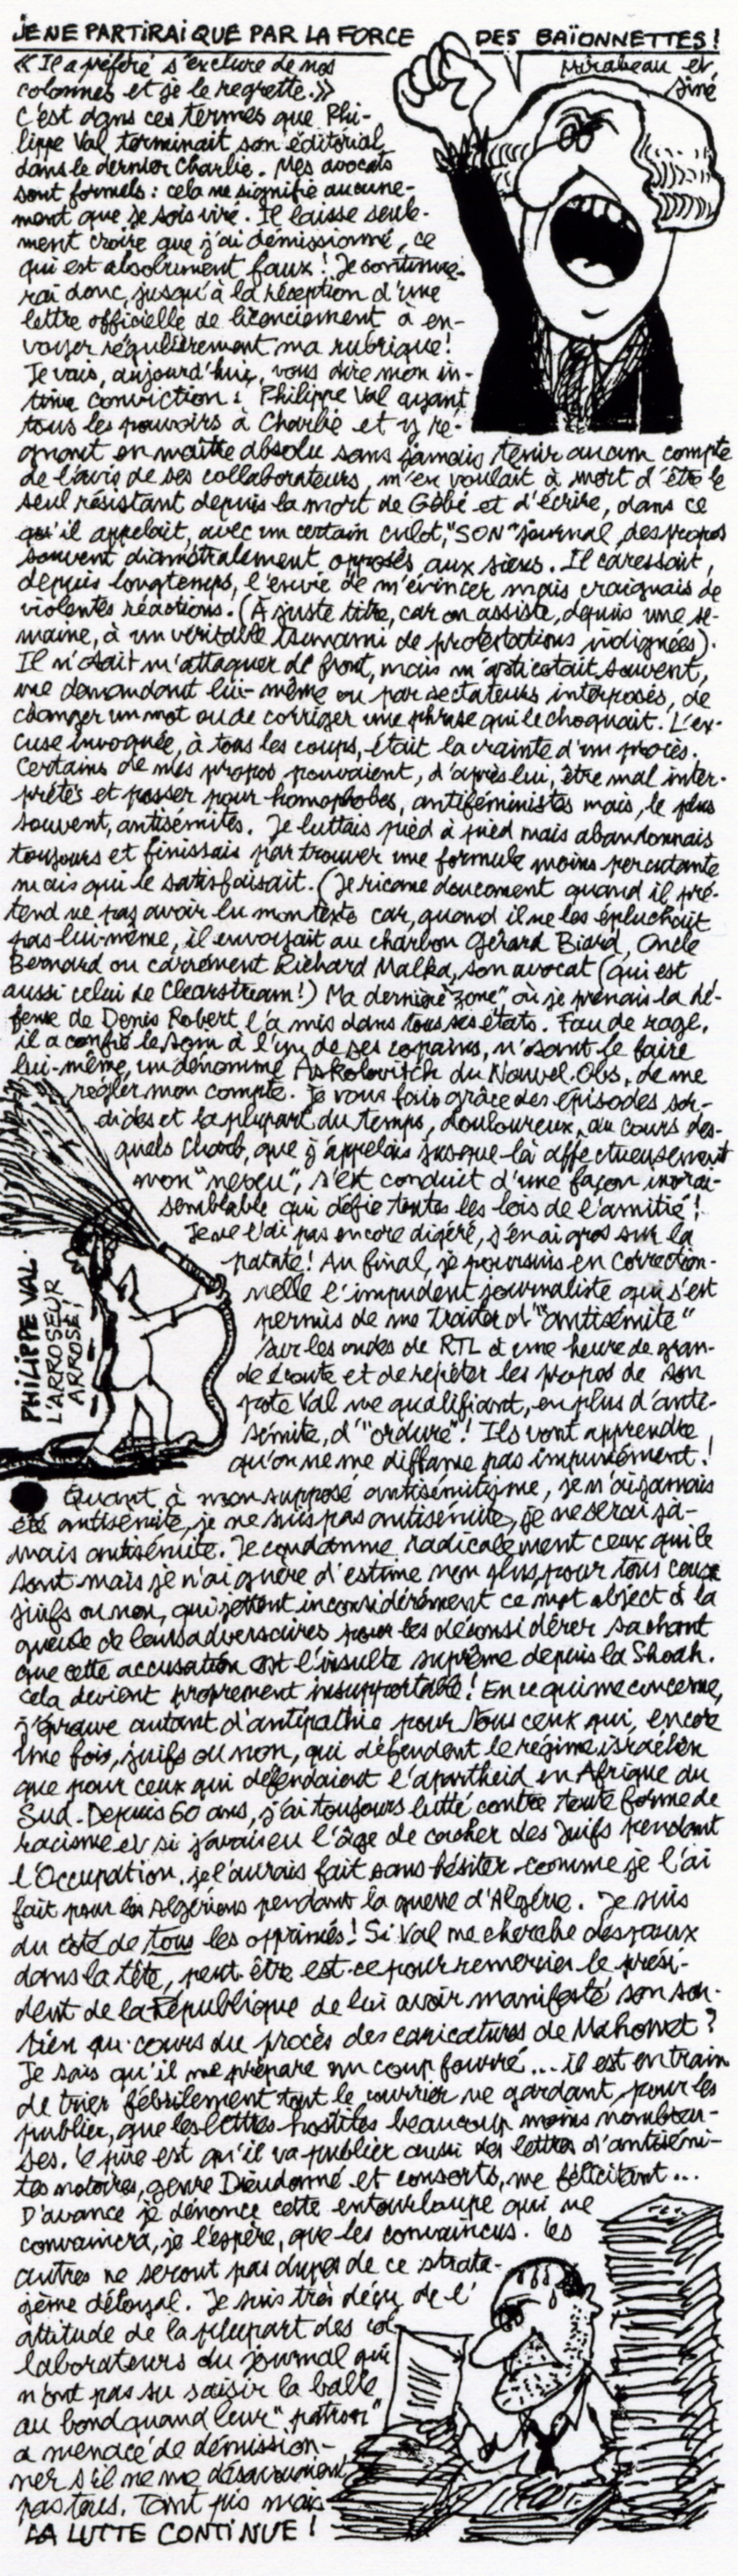 JE NE PARTIRAI QUE PAR LA FORCE DES BAÏONNETTES !
Mirabeau et
Siné
« Il a préféré s'exclure de nos
colonnes et je le regrette. »
C'est dans ces termes que Phi-
lippe Val terminait son éditorial
dans le dernier Charlie. Mes avocats
sont formels : cela ne signifie aucune-
ment que je sois viré. Il laisse seule-
ment croire que j'ai démissionné, ce
qui est absolument faux ! Je continue-
rai donc, jusqu'à la réception d'une
lettre officielle de licenciement à en-
voyer régulièrement ma rubrique !
Je vais, aujourd'hui, vous dire mon in-
time conviction : Philippe Val ayant
tous les pouvoirs à Charlie et y ré-
gnant en maître absolu sans jamais tenir aucun compte
de l'avis de ses collaborateurs, m'en voulait à mort d'être le
seul résistant depuis la mort de Gébé et d'écrire, dans ce
qu'il appelait, avec un certain culot, "SON" journal, des propos
souvent diamétralement opposés aux siens. Il caressait,
depuis longtemps, l'envie de m'évincer mais craignait de
violentes réactions. (À juste titre, car on assiste, depuis une se-
maine, à un véritable tsunami de protestations indignées).
Il n'osait m'attaquer de front, mais m'asticotait souvent,
me demandant lui-même ou par sectateurs interposés, de
changer un mot ou de corriger une phrase qui le choquait. L'ex-
cuse invoquée, à tous les coups, était la crainte d'un procès.
Certains de mes propos pouvaient, d'après lui, être mal inter-
prétés et passer pour homophobes, antiféministes mais, le plus
souvent, antisémites. Je luttais pied à pied mais abandonnais
toujours et finissais par trouver une formule moins percutante
mais qui le satisfaisait. (Je ricane doucement quand il pré-
tend ne pas avoir lu mon texte car, quand il ne les épluchait
pas lui-même, il envoyait au charbon Gérard Biard, Oncle
Bernard ou carrément Richard Malka, son avocat (qui est
aussi celui de Clearstream !) Ma dernière "zone" où je prenais la dé-
fense de Denis Robert l'a mis dans tous ses états. Fou de rage,
il a confié le soin à l'un de ses copains, n'osant le faire
lui-même, un dénommé Askolovitch du Nouvel Obs, de me
régler mon compte. Je vous fais grâce des épisodes sor-
dides et la plupart du temps, douloureux, au cours des-
quels Charb, que j'appelais jusque-là affectueusement
mon "neveu", s'est conduit d'une façon invrai-
semblable qui défie toutes les lois de l'amitié !
Je ne l'ai pas encore digéré, j'en ai gros sur la
patate ! Au final, je poursuis en correction-
nelle l'impudent journaliste qui s'est
permis de me traiter d'"antisémite"
sur les ondes de RTL à une heure de gran-
de écoute et de répéter les propos de son
pote Val me qualifiant, en plus d'anti-
sémite, d'"ordure" ! Ils vont apprendre
qu'on ne me diffame pas impunément !
PHILIPPE VAL.
L'ARROSEUR
ARROSÉ !
Quant à mon supposé antisémitisme, je n'ai jamais
été antisémite, je ne suis pas antisémite, je ne serai ja-
mais antisémite. Je condamne radicalement ceux qui le
sont mais je n'ai guère d'estime non plus pour tous ceux
juifs ou non, qui jettent inconsidérément ce mot abject à la
gueule de leurs adversaires pour les déconsidérer sachant
que cette accusation est l'insulte suprême depuis la Shoah.
Cela devient proprement insupportable ! En ce qui me concerne,
j'éprouve autant d'antipathie pour tous ceux qui, encore
une fois, juifs ou non, qui défendent le régime israélien
que pour ceux qui défendaient l'apartheid en Afrique du
Sud. Depuis 60 ans, j'ai toujours lutté contre toute forme de
racisme et si j'avais eu l'âge de cacher des Juifs pendant
l'Occupation, je l'aurais fait sans hésiter comme je l'ai
fait pour les Algériens pendant la guerre d'Algérie. Je suis
du côté de tous les opprimés ! Si Val me cherche des poux
dans la tête, peut-être est-ce pour remercier le prési-
dent de la République de lui avoir manifesté son sou-
tien au cours du procès des caricatures de Mahomet ?
Je sais qu'il me prépare un coup fourré... il est en train
de trier fébrilement tout le courrier ne gardant, pour les
publier, que les lettres hostiles beaucoup moins nombreu-
ses. Le pire est qu'il va publier aussi des lettres d'antisémi-
tes notoires, genre Dieudonné et consorts, me félicitant...
D'avance je dénonce cette entourloupe qui ne
convaincra, je l'espère, que les convaincus. Les
autres ne seront pas dupes de ce strata-
gème déloyal. Je suis très déçu de l'
attitude de la plupart des col-
laborateurs du journal qui
n'ont pas su saisir la balle
au bond quand leur "patron"
a menacé de démission-
ner s'il ne me désavouaient
pas tous. Tant pis mais
LA LUTTE CONTINUE !